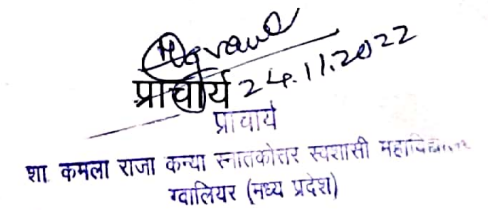 प्राचार्य 24.11.2022
प्राचार्य
शा. कमला राजा कन्या स्नातकोत्तर स्वशासी महाविद्यालय
ग्वालियर (मध्य प्रदेश)